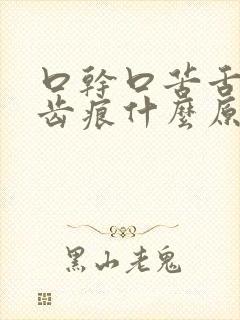 口幹口苦舌
齒痕什麼原
黑山老鬼